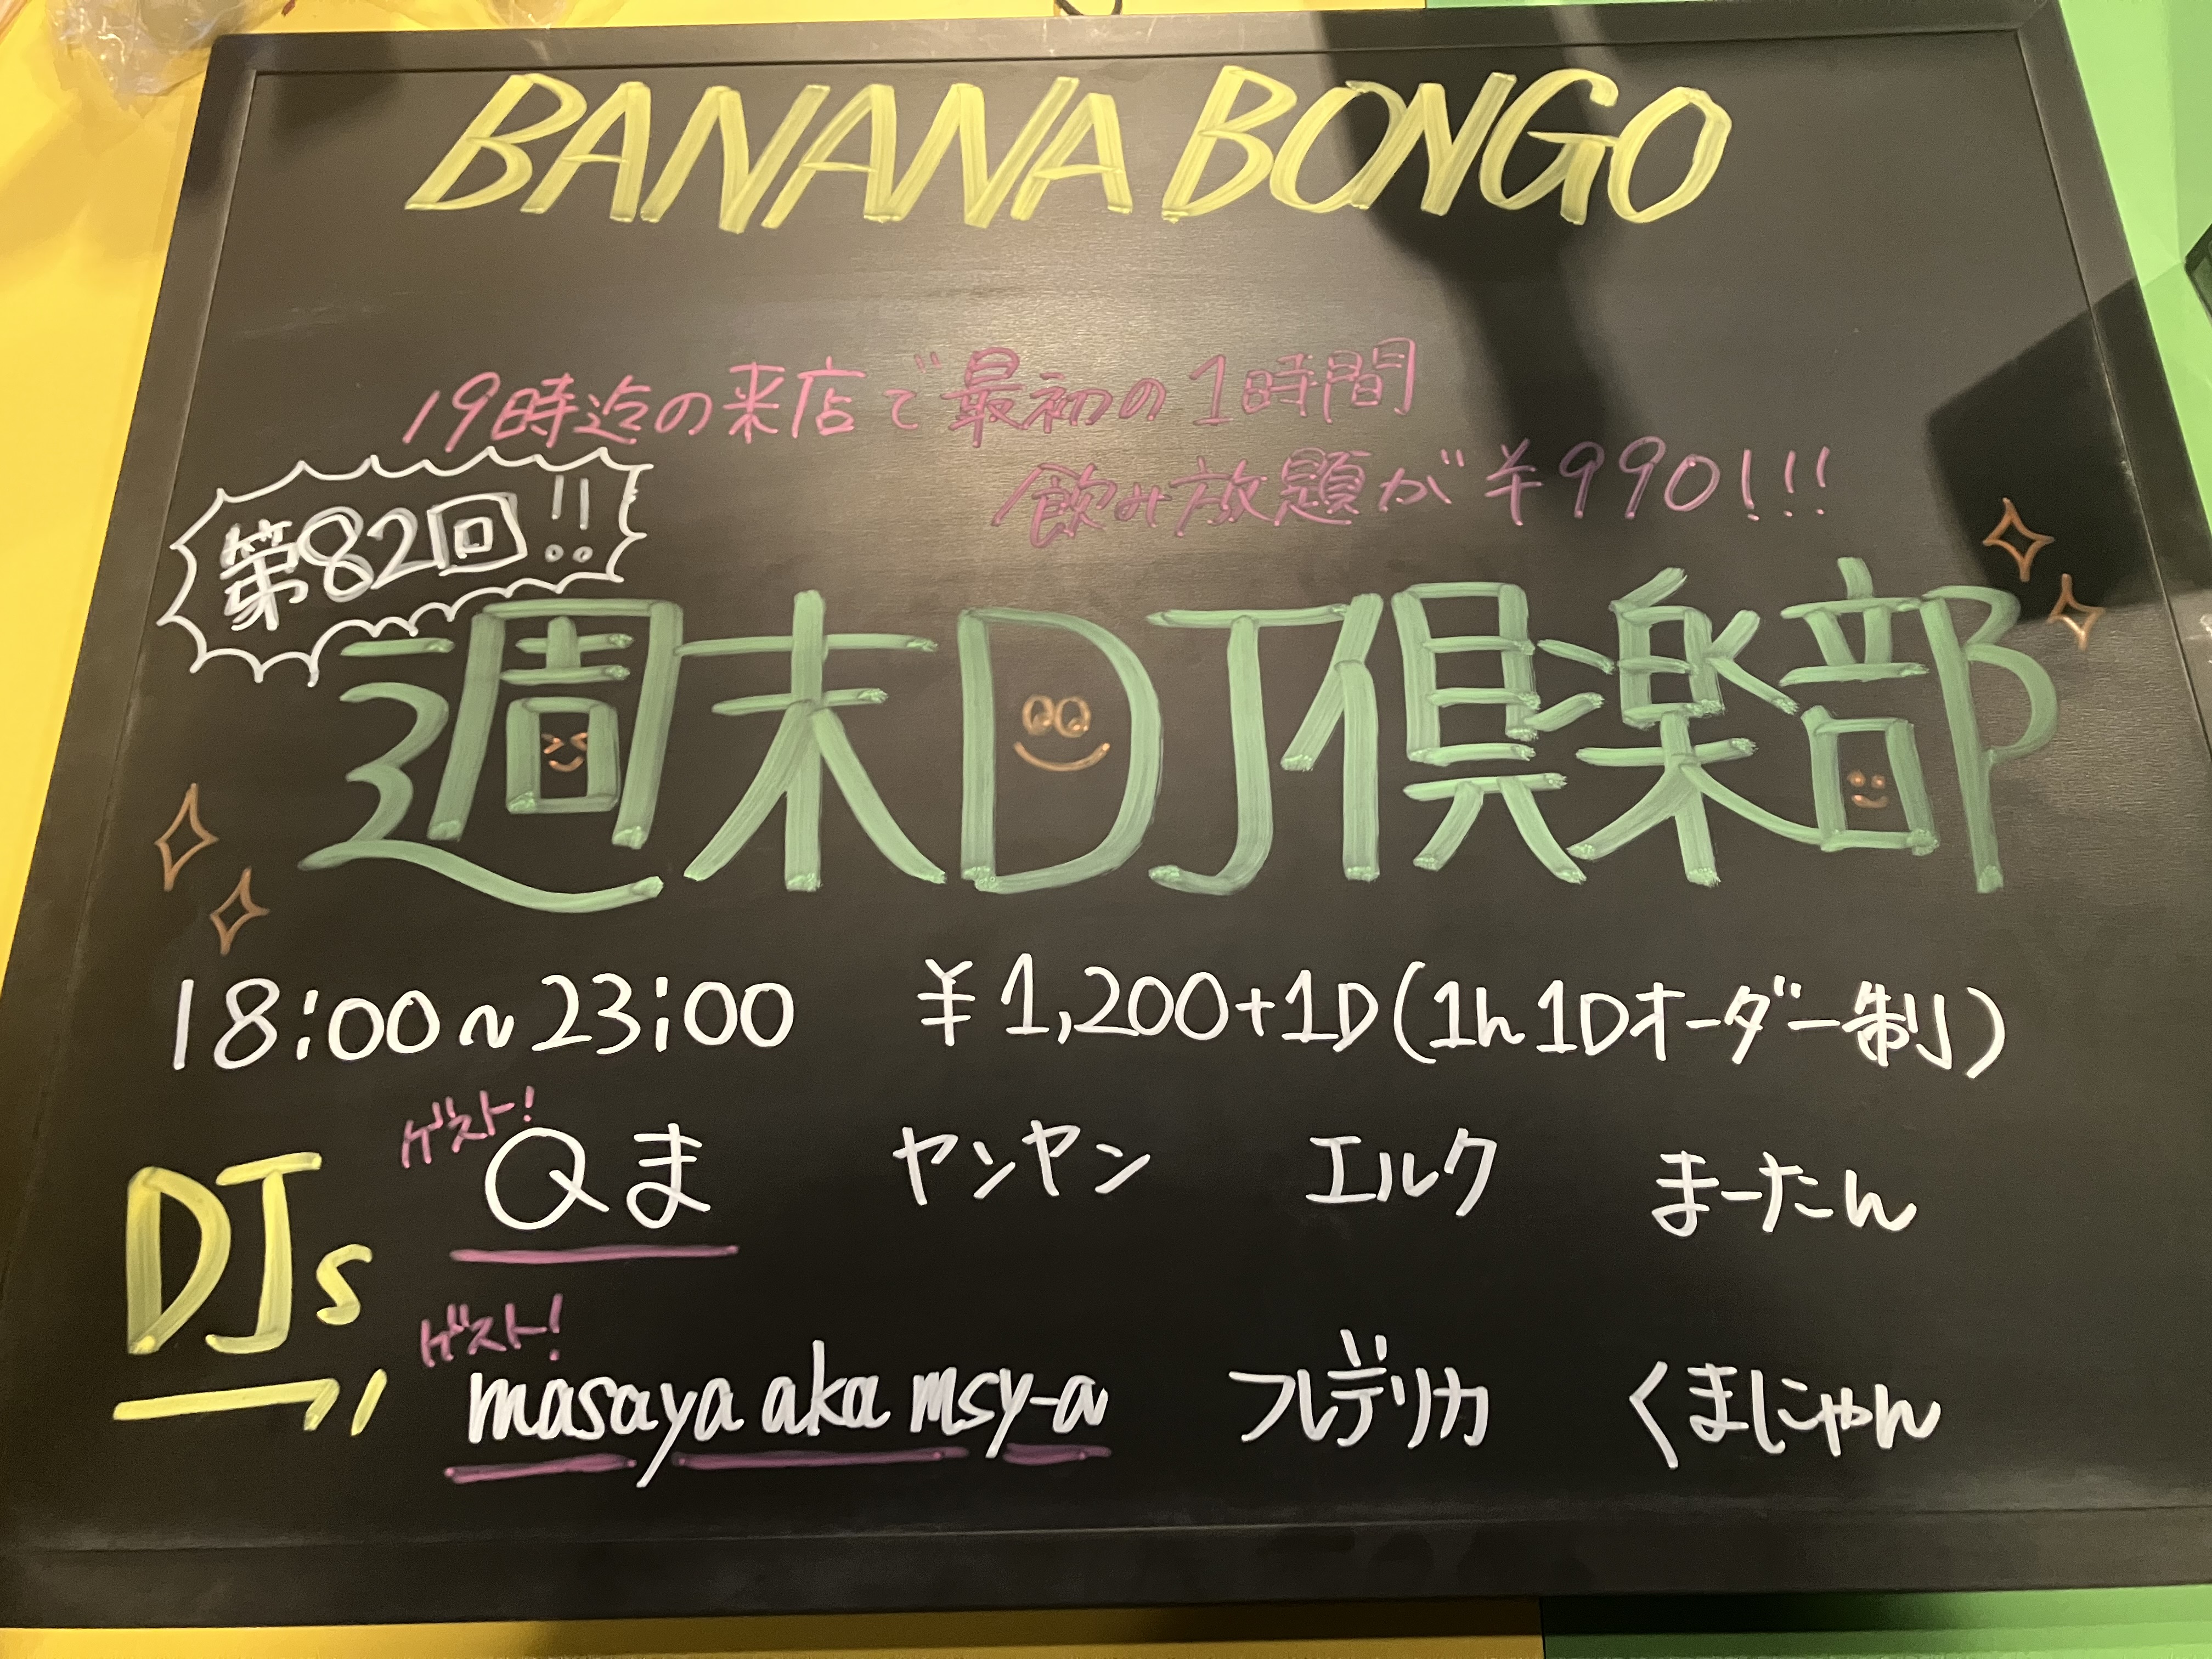 BANANA BONGO
19時迄の来店で最初の1時間
飲み放題が¥990!!!
第82回!!
週末DJ倶楽部
18:00~23:00 ¥1,200+1D(1h 1Dオーダー制)
ゲスト!
DJs Qま ヤンヤン エルク まーたん
ゲスト!
masaya aka msy-a フレデリカ くまにゃん